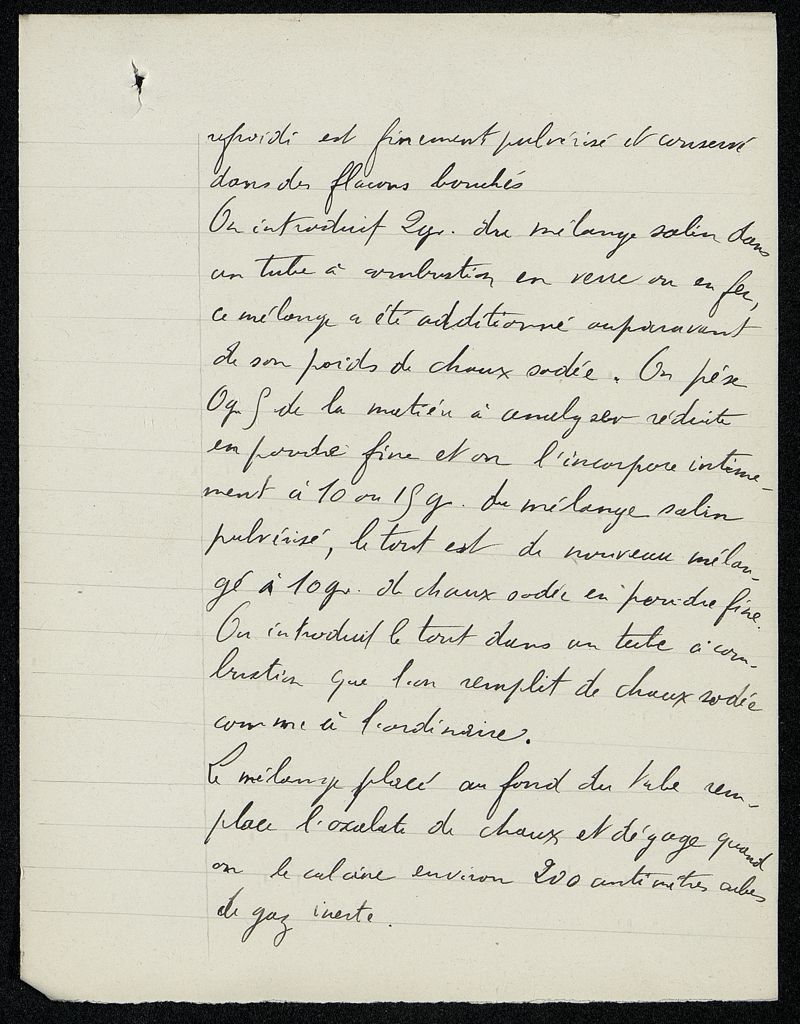 refroidi est finement pulvérisé et conservé
dans des flacons bouchés
On introduit 2gr. du mélange salin dans
un tube à combustion en verre ou en fer,
ce mélange a été additionné auparavant
de son poids de chaux sodée. On pèse
0g.5 de la matière à analyser réduite
en poudre fine et on l'incorpore intime-
ment à 10 ou 15 g. du mélange salin
pulvérisé, le tout est de nouveau mélan-
gé à 10gr. de chaux sodée en poudre fine.
On introduit le tout dans un tube à com-
bustion que l'on remplit de chaux sodée
comme à l'ordinaire.
Le mélange placé au fond du tube rem-
place l'oxalate de chaux et dégage quand
on le calcine environ 200 centimètres cubes
de gaz inerte.